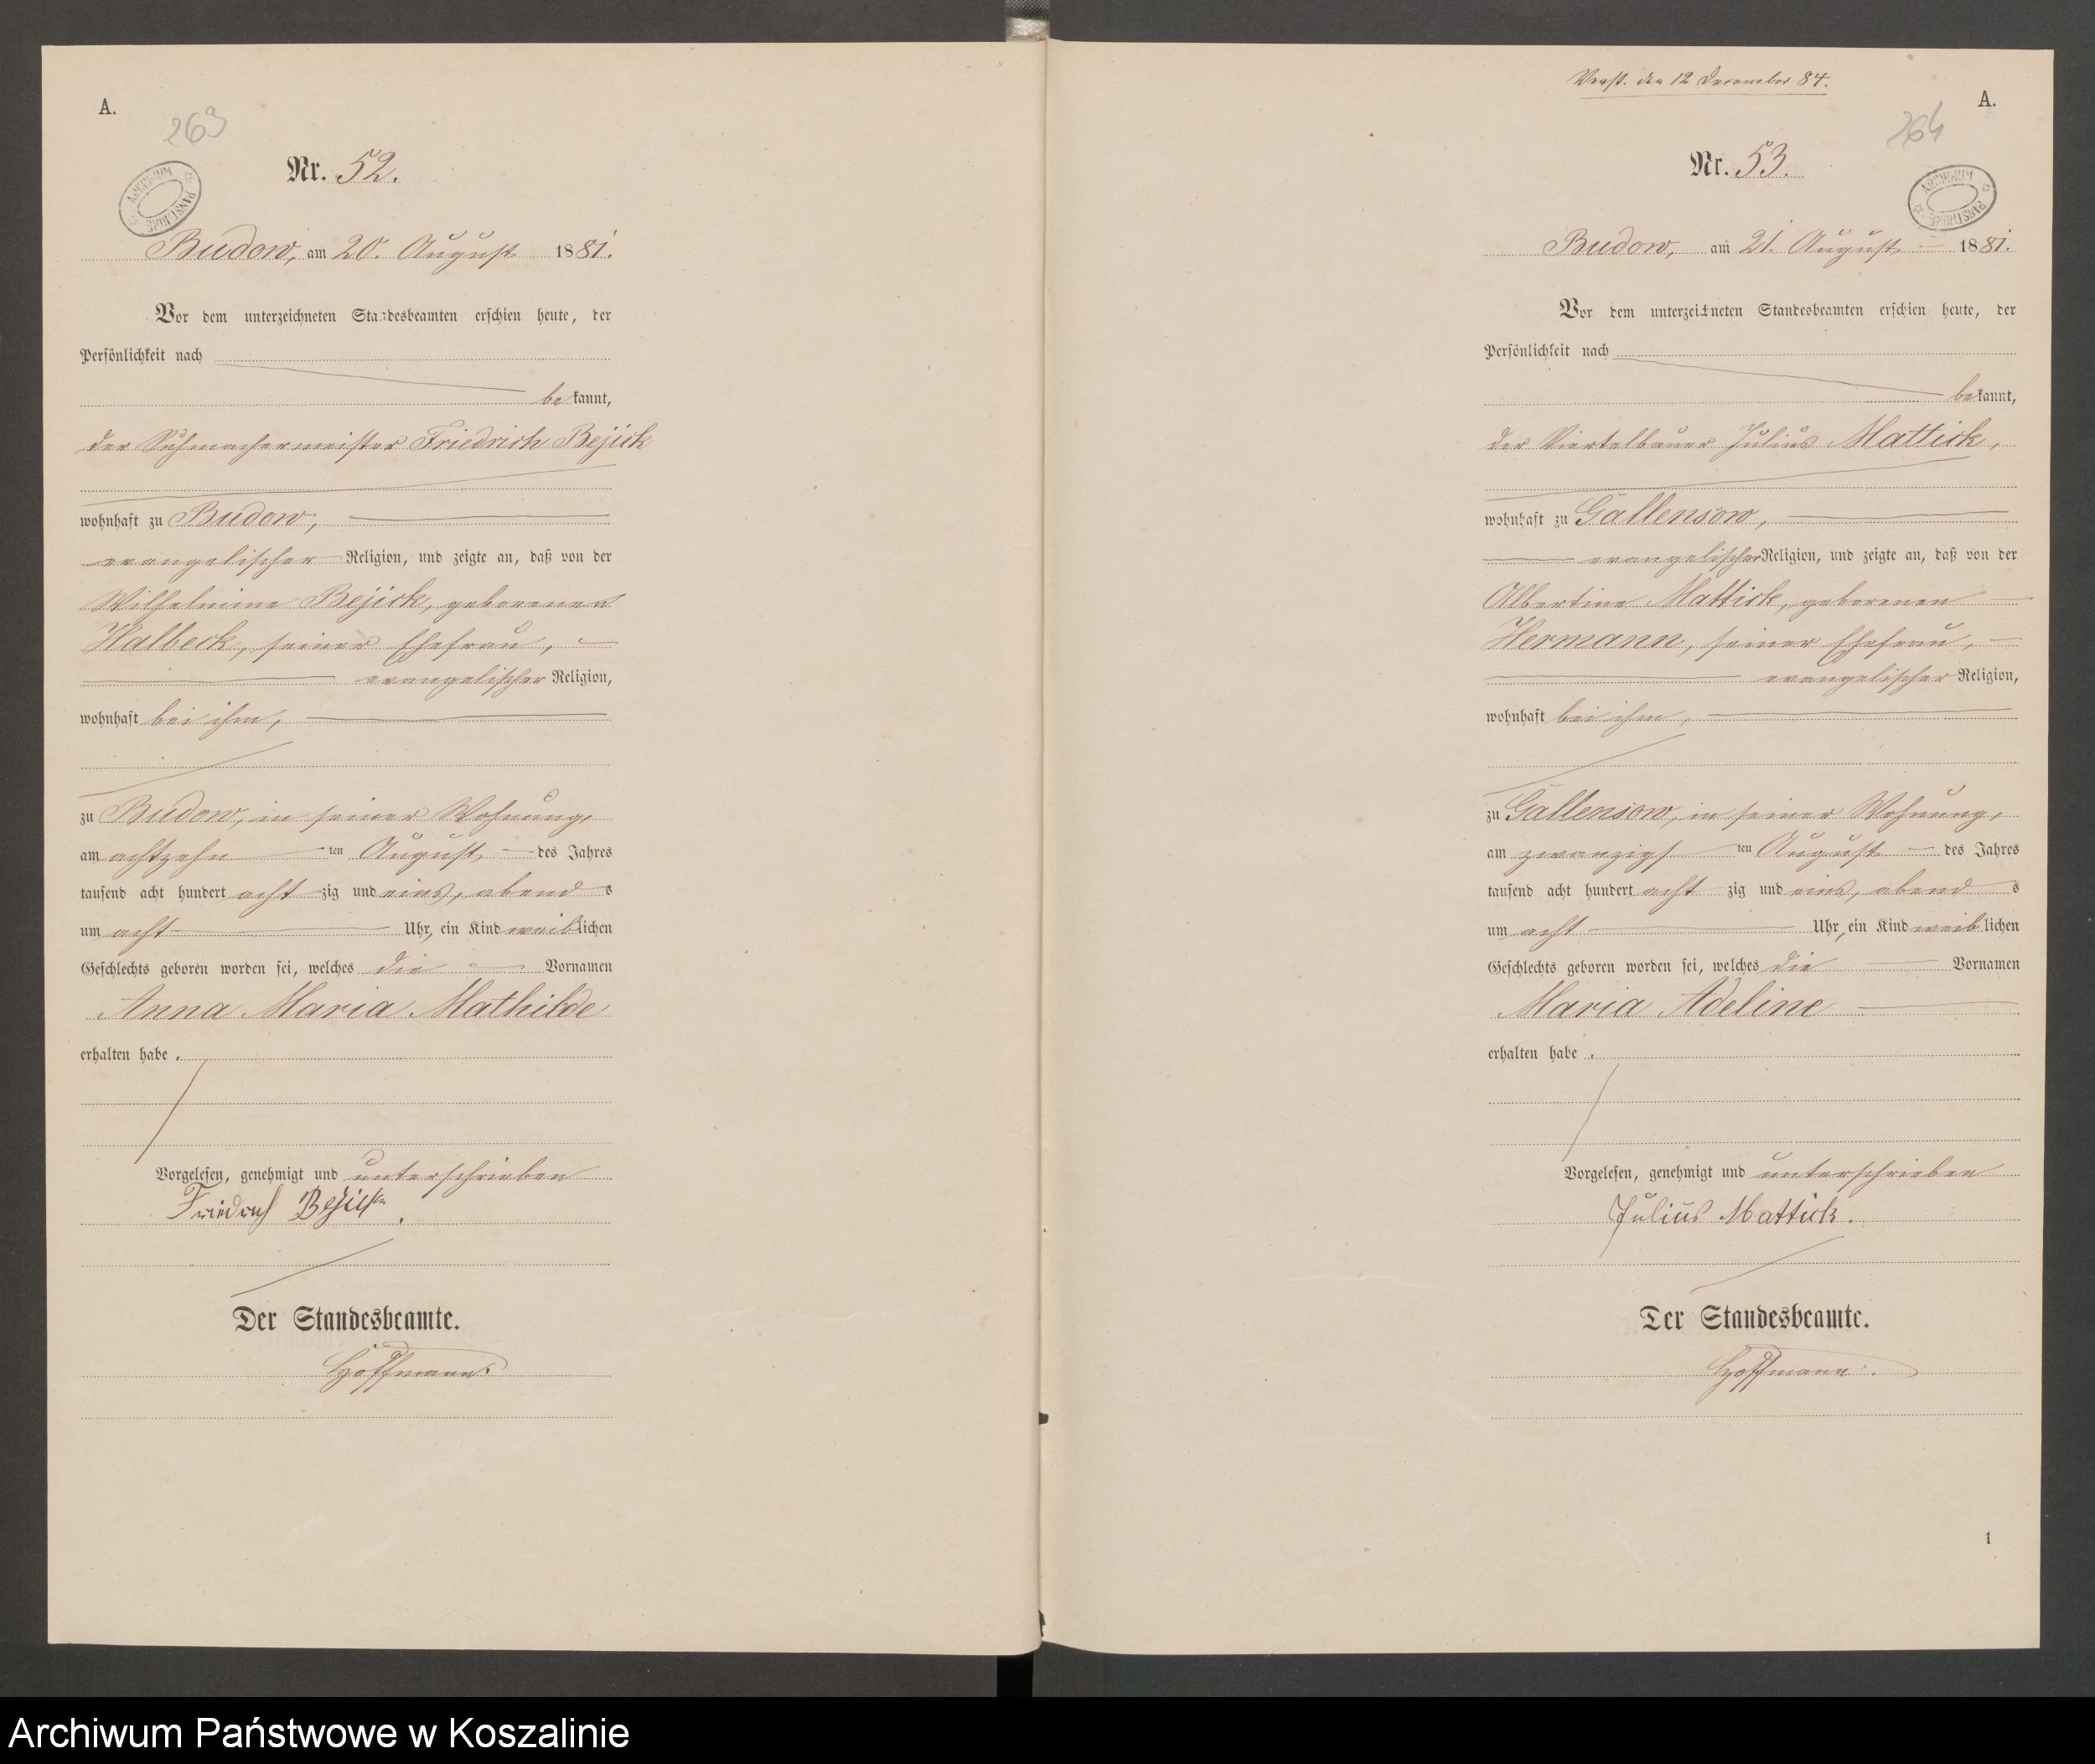 A.
263
Nr. 52.
ARCHIWUM PAŃSTWOWE
Budow, am 20. August 1881.
Vor dem unterzeichneten Standesbeamten erschien heute, der
Persönlichkeit nach
bekannt,
der Schmachermeister Friedrich Bejick
wohnhaft zu Budow,
evangelischer Religion, und zeigte an, daß von der
Wilhelmine Bejick, geborenen
Halbeck, seiner Ehefrau,
evangelischer Religion,
wohnhaft bei ihm,
zu Budow, in seiner Wohnung,
am achtzehn ten August des Jahres
tausend acht hundert acht zig und eins, abend s
um acht Uhr, ein Kind weiblichen
Geschlechts geboren worden sei, welches die Vornamen
Anna Maria Mathilde
erhalten habe.
Vorgelesen, genehmigt und unterschrieben
Friedrich Bejick.
Der Standesbeamte.
Hoffmann.
Verst. den 12 December 84.
A.
264
Nr. 53.
ARCHIWUM PAŃSTWOWE
Budow, am 21. August 1881.
Vor dem unterzeichneten Standesbeamten erschien heute, der
Persönlichkeit nach
bekannt,
der Viertelbauer Julius Mattick,
wohnhaft zu Gallensow,
evangelischer Religion, und zeigte an, daß von der
Albertine Mattick, geborenen
Hermann, seiner Ehefrau,
evangelischer Religion,
wohnhaft bei ihm,
zu Gallensow, in seiner Wohnung,
am zwanzigs ten August des Jahres
tausend acht hundert acht zig und eins, abend s
um acht Uhr, ein Kind weiblichen
Geschlechts geboren worden sei, welches die Vornamen
Maria Adeline
erhalten habe.
Vorgelesen, genehmigt und unterschrieben
Julius Mattick.
Der Standesbeamte.
Hoffmann.
1
Archiwum Państwowe w Koszalinie